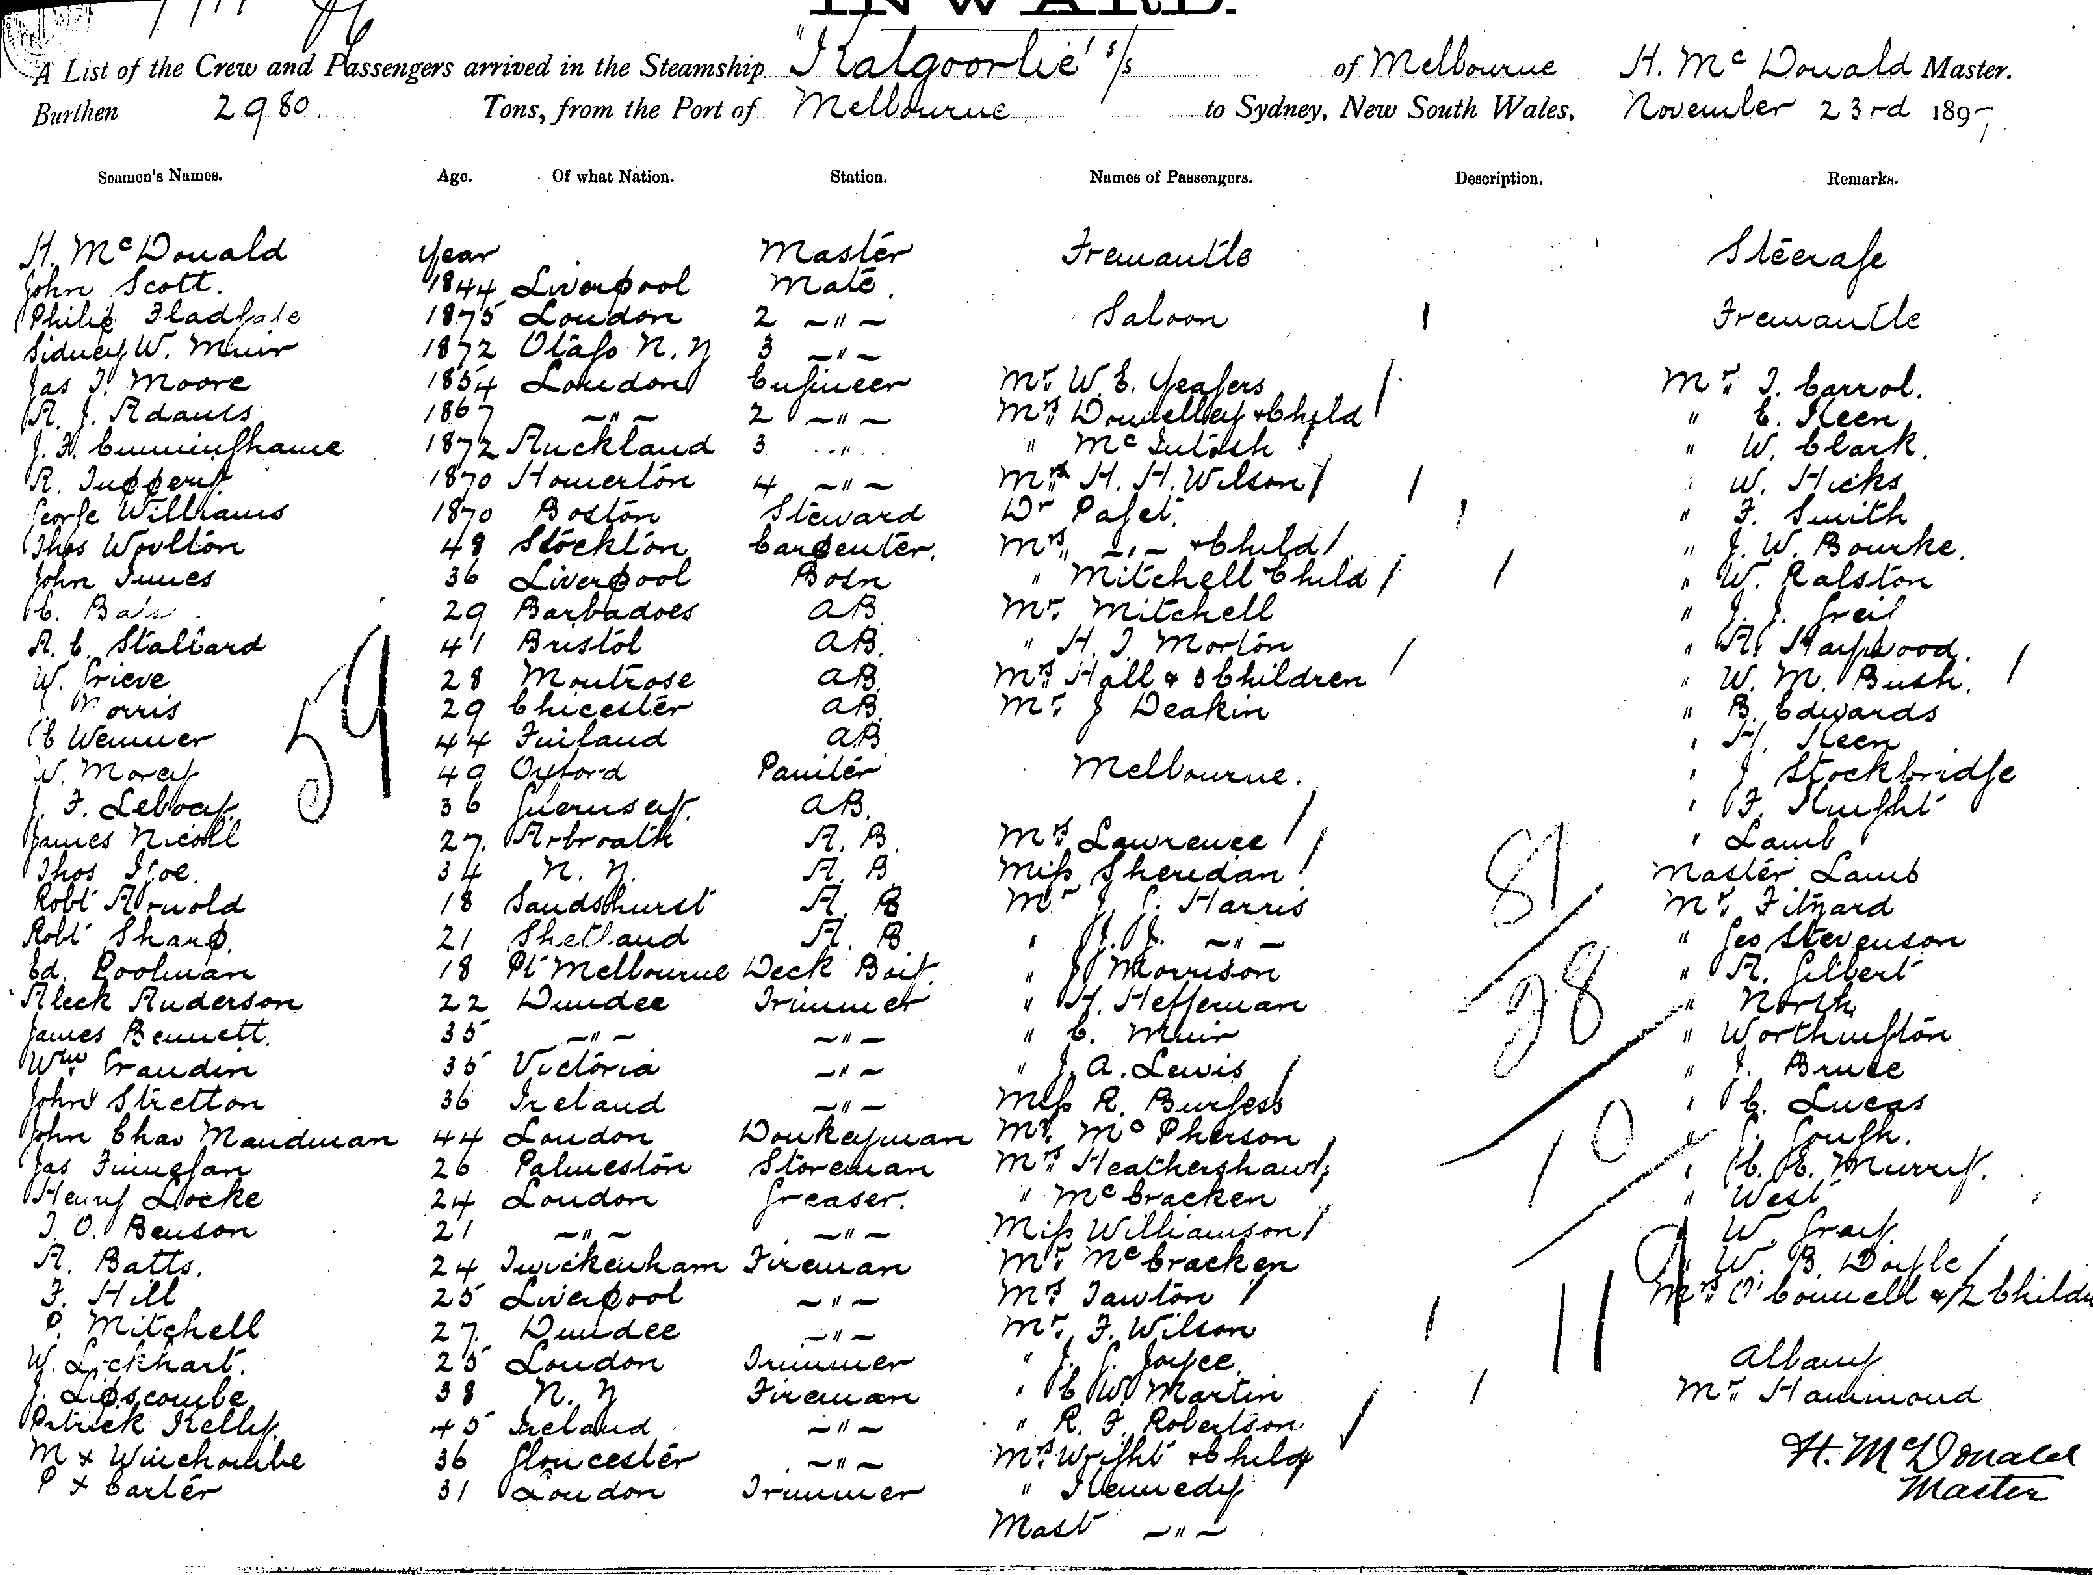 INWARD.
A List of the Crew and Passengers arrived in the Steamship "Kalgoorlie" s/s of Melbourne H. McDonald Master.
Burthen 2980 Tons, from the Port of Melbourne to Sydney, New South Wales, November 23rd 1897
Seamen's Names. Age. Of what Nation. Station. Names of Passengers. Description. Remarks.
H. McDonald year Master Fremantle Steerage
John Scott. 1844 Liverpool Mate.
Philip Fladgate 1875 London 2 -"- Saloon Fremantle
Sidney W. Muir 1872 Otago N.Z 3 -"-
Jas T. Moore 1854 London Engineer Mr. W. E. Yeagers Mr. T. Carrol.
A. J. Adams 1867 -"- 2 -"- Mrs Donnelley & Child " C. Keen
J. H. Cunninghame 1872 Auckland 3 " " McIntosh " W. Clark.
R. 1870 Homerton 4 -"- Mrs H. H. Wilson " W. Hicks
George Williams 1870 Boston Steward Dr Paget. " F. Smith
Thos Woolton 48 Stockton Carpenter. Mrs -"- & Child " J. W. Bourke.
John Innes 36 Liverpool Bosn " Mitchell & Child " W. Ralston
C. 29 Barbadoes AB. Mr. Mitchell " J. J. Greil
A. C. Stallard 41 Bristol AB. " H. T. Morton " A. Haywood.
W. Grieve 28 Montrose AB. Mrs Hall & 3 Children " W. M. Bush.
Norris 29 Chicester AB. Mr. J Deakin " B. Edwards
C Wenner 44 Finland AB " H. Keen
W. Morey 49 Oxford Painter Melbourne. " J. Stockbridge
J. F. Lebocy. 36 Guernsey. AB. " F. Knight
59
James Nicoll 27. Arbroath A. B. Mrs Lawrence " Lamb
Thos Koe. 34 N. Z. A. B Miss Sheridan Master Lamb
Robt Arnold 18 Sandshurst A. B Mr J. G. Harris Mr. Fitzard
81
Robt Sharp. 21 Shetland A. B " J. J. -"- " Geo Stevenson
Ed. Poolman 18 Pt Melbourne Deck Boy. " J Morrison " A. Gilbert
Aleck Anderson 22 Dundee Trimmer " H. Heffernan " North
28
James Bennett. 35 -"- -"- " C. Muir " Worthington
Wm Grandin 35 Victoria -"- " J. A. Lewis " J. Bruce
John Stretton 36 Ireland -"- Miss R. Burgess " C. Lucas
John Chas Maudman 44 London Donkeyman Mr. McPherson " Gough.
10
Jas Finnegan 26 Palmeston Storeman Mrs Heathershaw " C. E. Murry.
Henry Locke 24 London Greaser. " McCracken " West
T. O. Benson 21 -"- -"- Miss Williamson " W. Gray.
A. Batts. 24 Twickenham Fireman Mr. McCracken " W. B. Doyle
F. Hill 25 Liverpool -"- Mrs Tawton Mrs O'Connell & 2 Childr
11
P. Mitchell 27. Dundee -"- Mr. F. Wilson
W. Lockhart. 25 London Trimmer " J. G. Joyce. Albany
J. Lipscombe 38 N. Z Fireman " C W. Martin Mr. Hammond
Patrick Kelly. 45 Ireland -"- " R. F. Robertson
M x Winchombe 36 Gloucester -"- Mrs Wright & Child H. McDonald
P x Carter 31 London Trimmer " Kennedy Master
Mast -"-